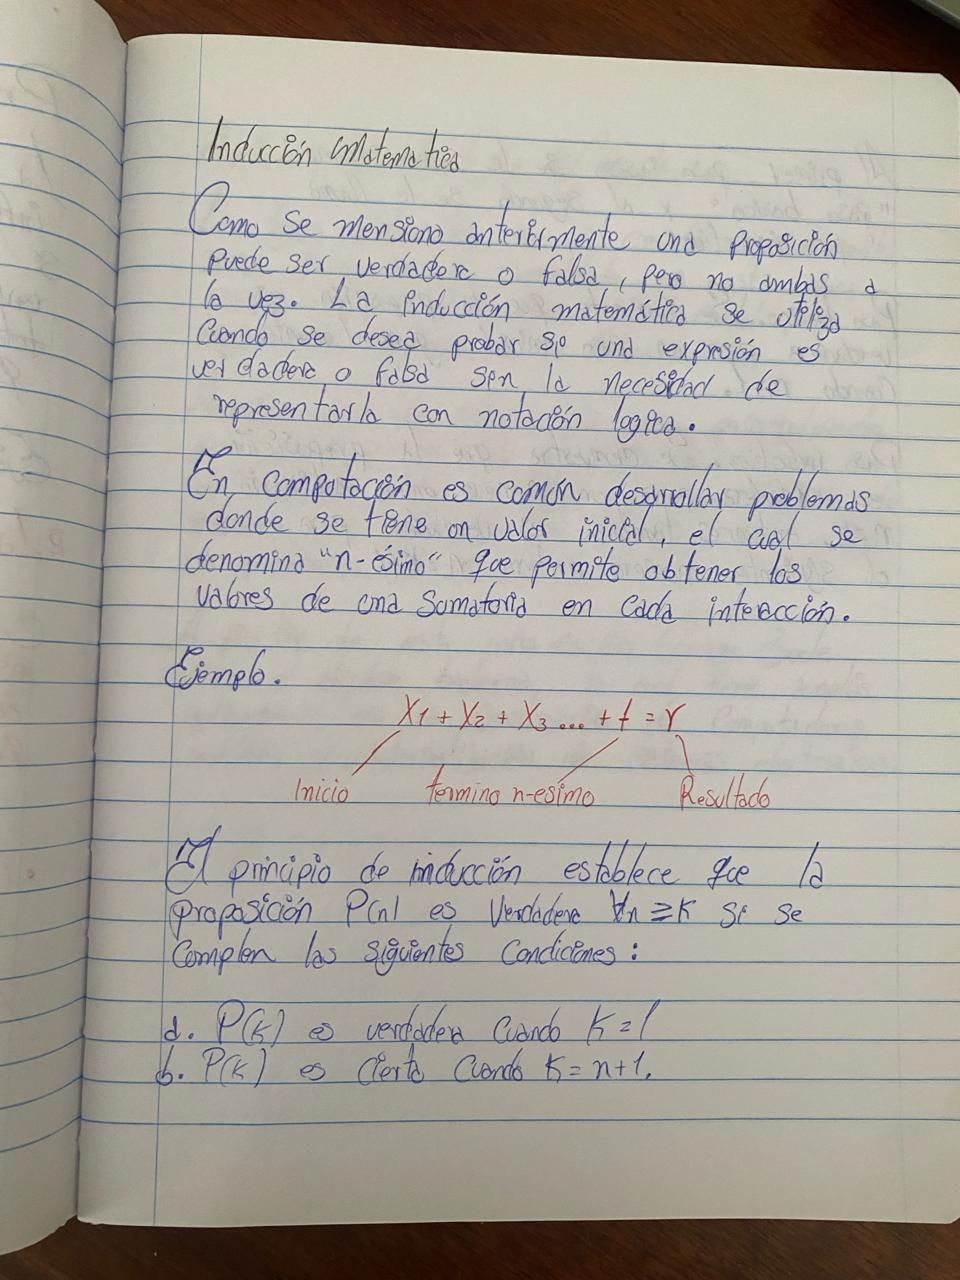 Inducción Matematica
Como se mensiono anteriormente una proposición
puede ser verdadera o falsa, pero no ambas a
la vez. La inducción matemática se utiliza
Cuando se desea probar si una expresión es
verdadera o falsa sin la necesidad de
representarla con notación logica.
En computación es común desarrollar problemas
donde se tiene un valor inicial, el cual se
denomina "n-ésimo" que permite obtener los
valores de una Sumatoria en cada interacción.
Ejemplo.
X1 + X2 + X3 ... + t = r
Inicio termino n-esimo Resultado
El principio de inducción establece que la
proposición P(n) es Verdadera ∀n ≥ K si se
Complen las siguientes Condiciones:
a. P(K) es verdadera Cuando K = 1
b. P(K) es Cierto Cuando K = n+1.